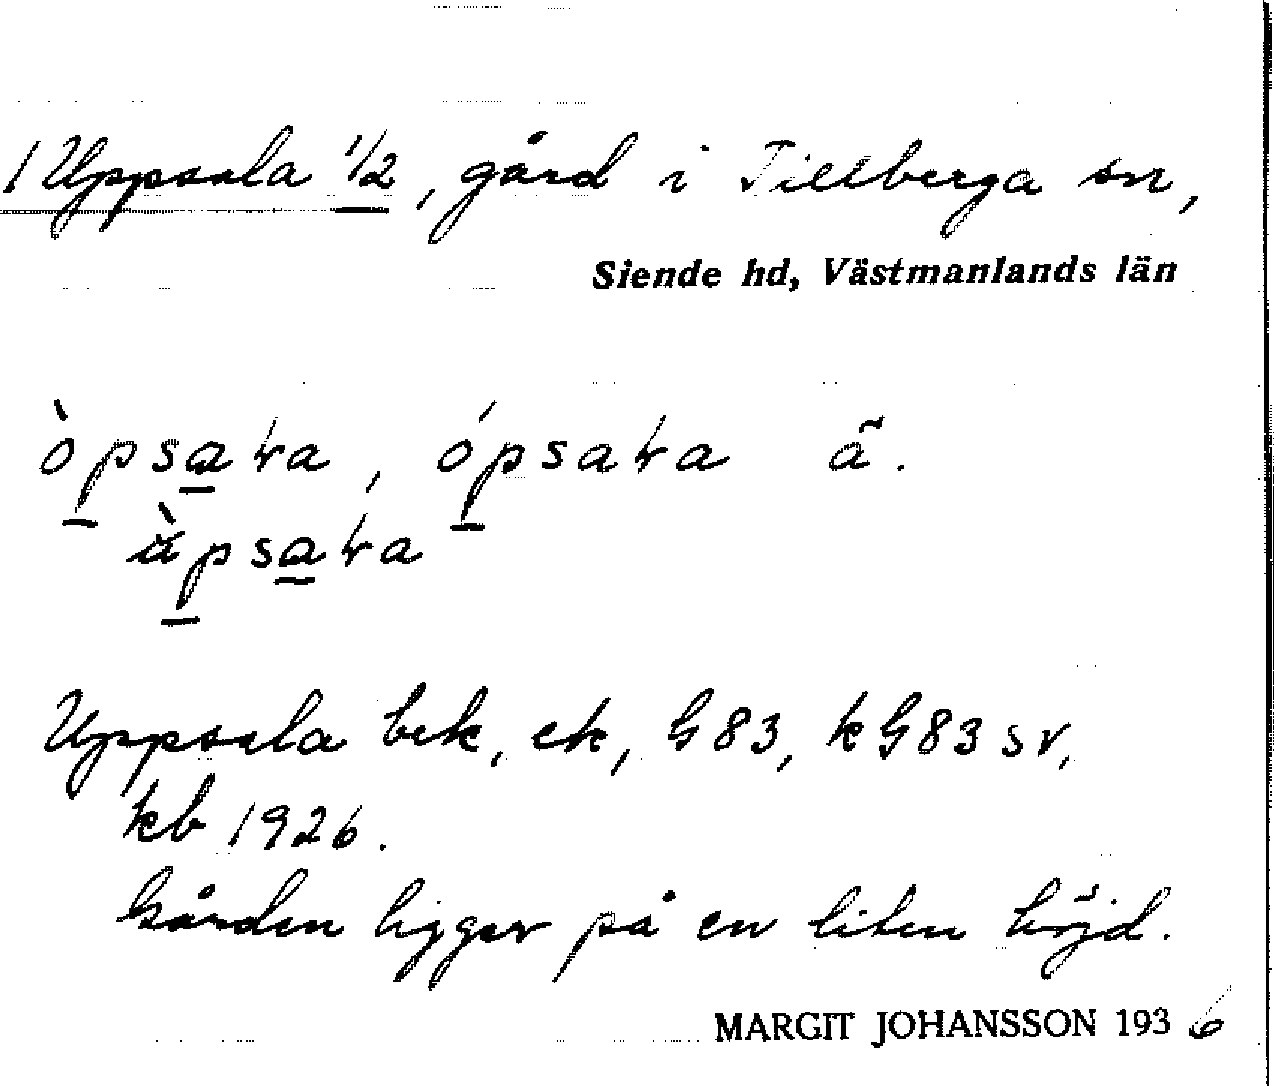 1 Uppsala 1/2, gård i Tillberga sn,
Siende hd, Västmanlands län
òpsaɫa, ópsaɫa ã.
àpsaɫa
Uppsala bek, ek, G83, kG83 sv,
kb 1926.
Gården ligger på en liten höjd.
MARGIT JOHANSSON 1936